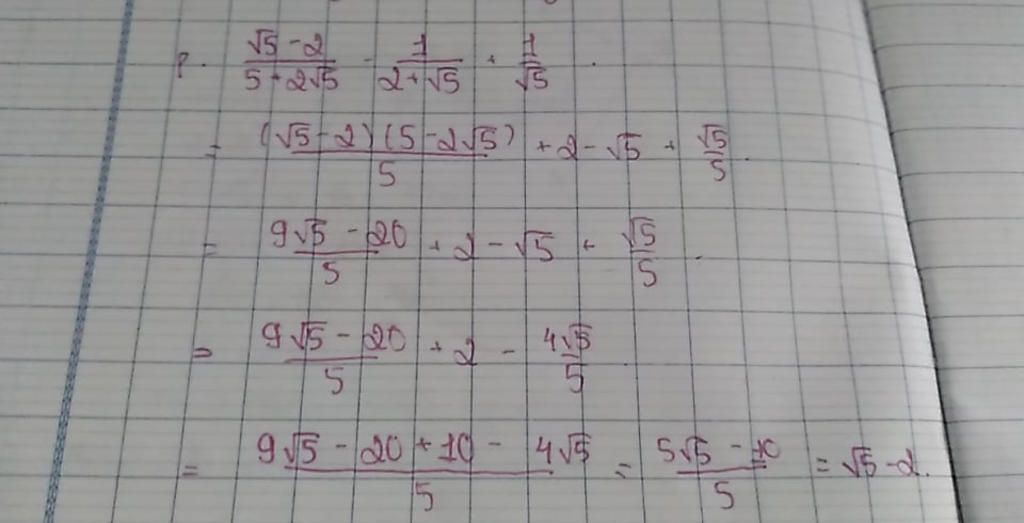 P. (√5 - 2)/(5 + 2√5) - 1/(2 + √5) + 1/√5 .
= ((√5 - 2)(5 - 2√5))/5 + 2 - √5 + √5/5 .
= (9√5 - 20)/5 + 2 - √5 + √5/5 .
= (9√5 - 20)/5 + 2 - 4√5/5
= (9√5 - 20 + 10 - 4√5)/5 = (5√5 - 10)/5 = √5 - 2.